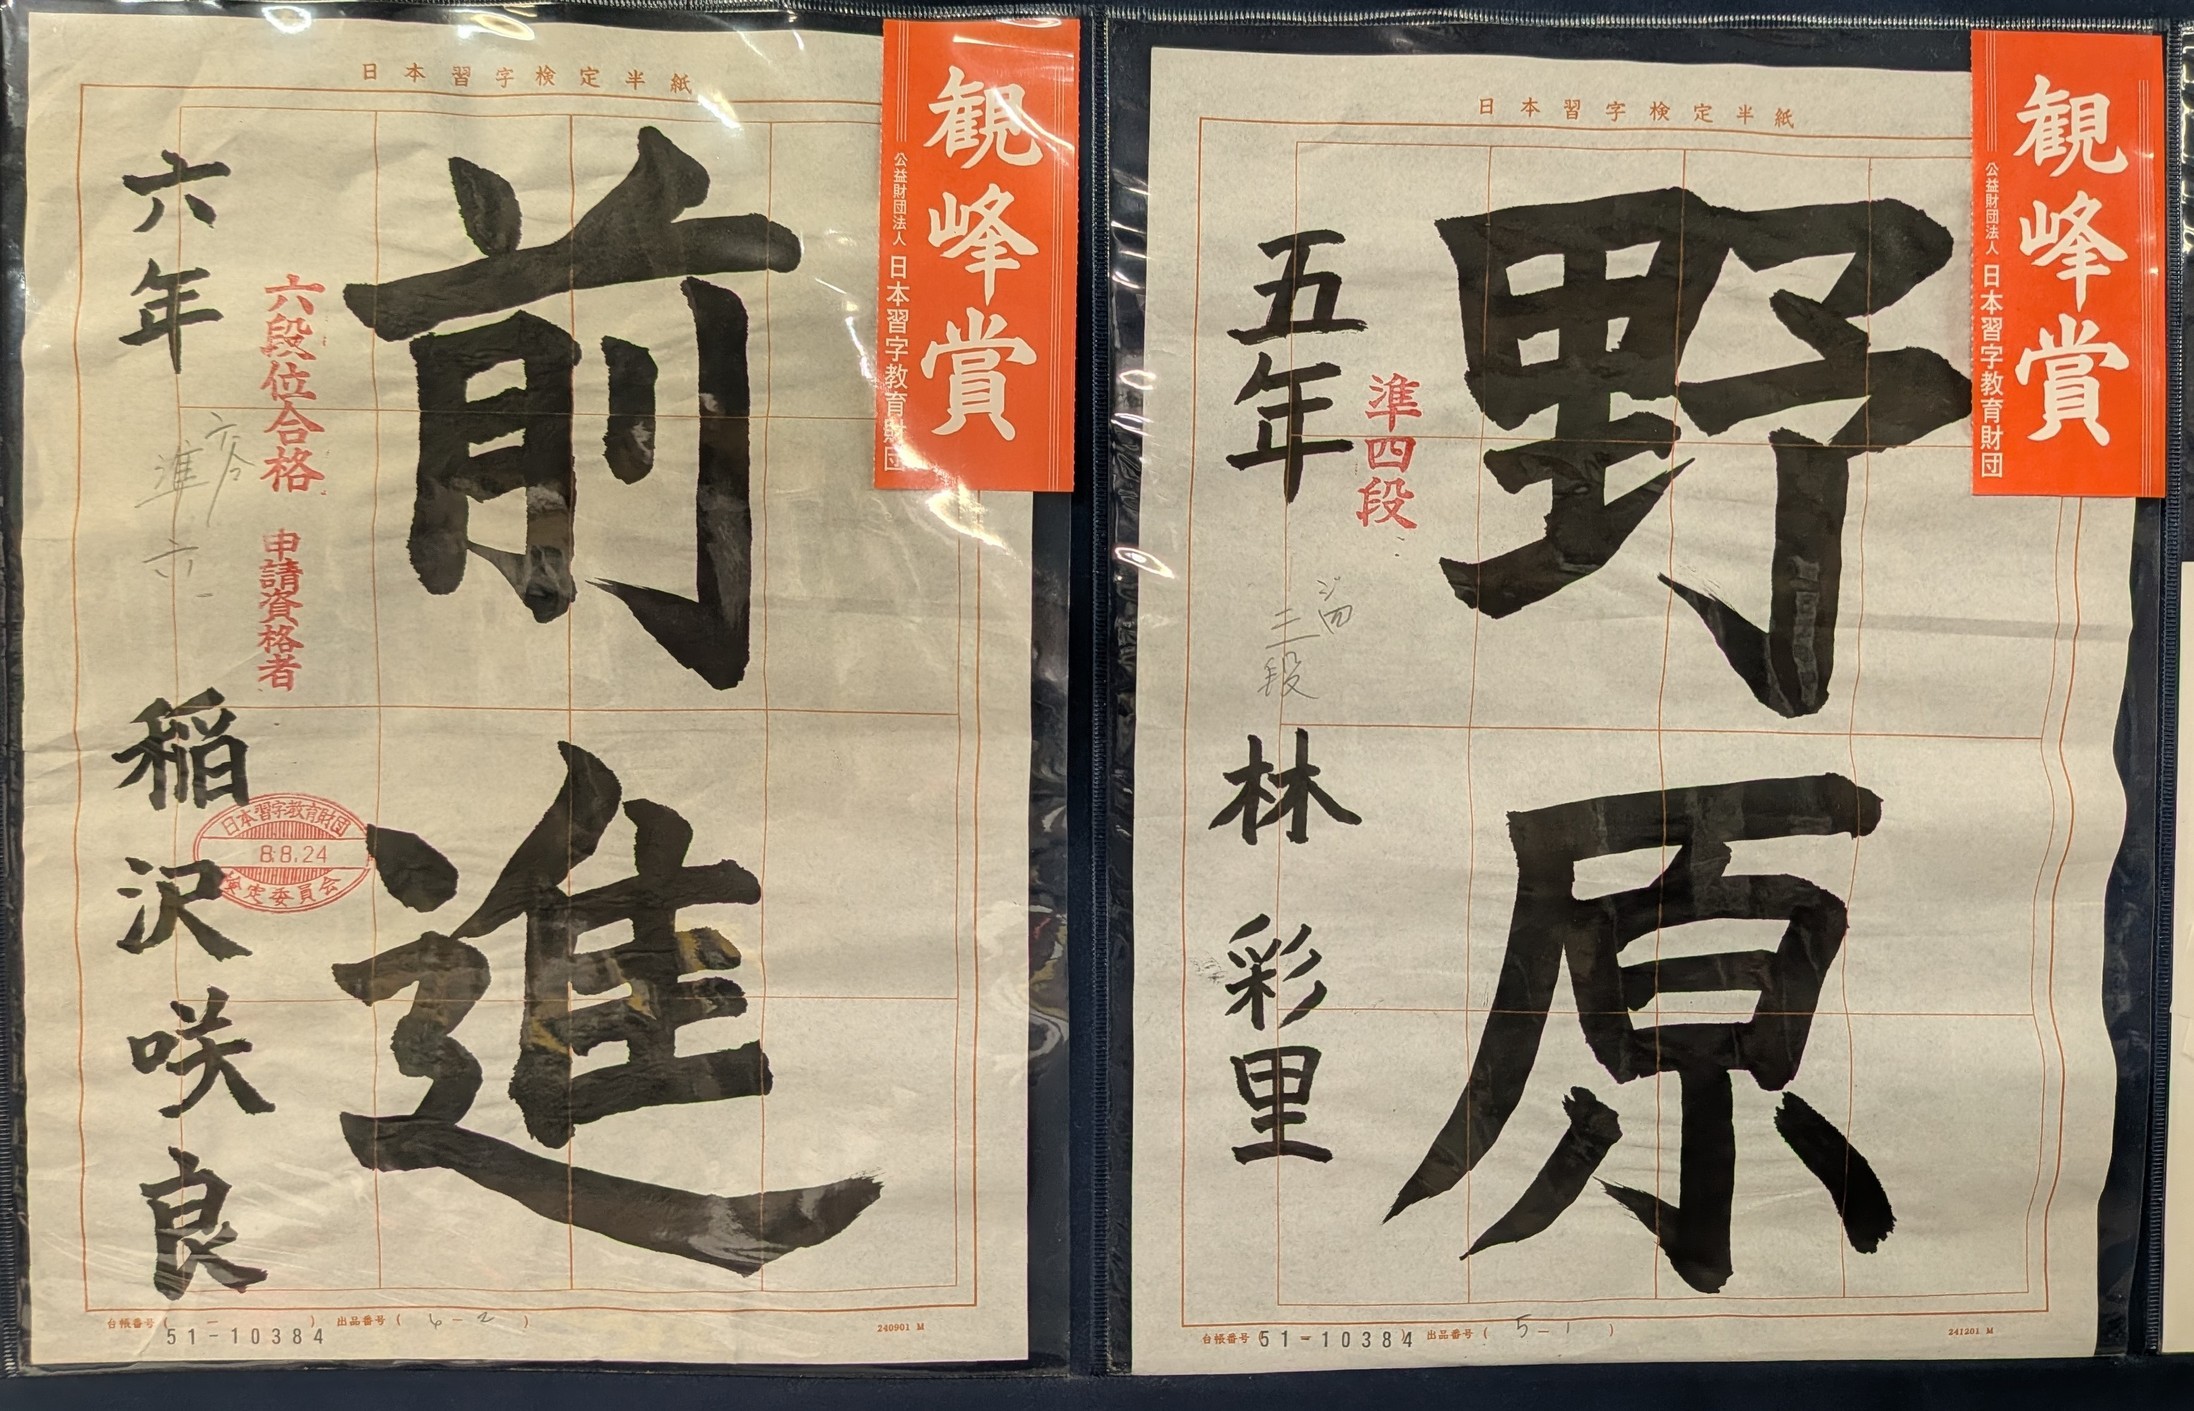 日本習字検定半紙
観峰賞
公益財団法人 日本習字教育財団
前進
六段位合格 申請資格者
六年 稲沢咲良
準六
日本習字教育財団
8.8.24
検定委員会
台帳番号（ － ） 出品番号（ 6－2 ）
51-10384
240901 M
日本習字検定半紙
観峰賞
公益財団法人 日本習字教育財団
野原
準四段
三段
五年 林彩里
台帳番号（ － ） 出品番号（ 5－1 ）
51-10384
241201 M